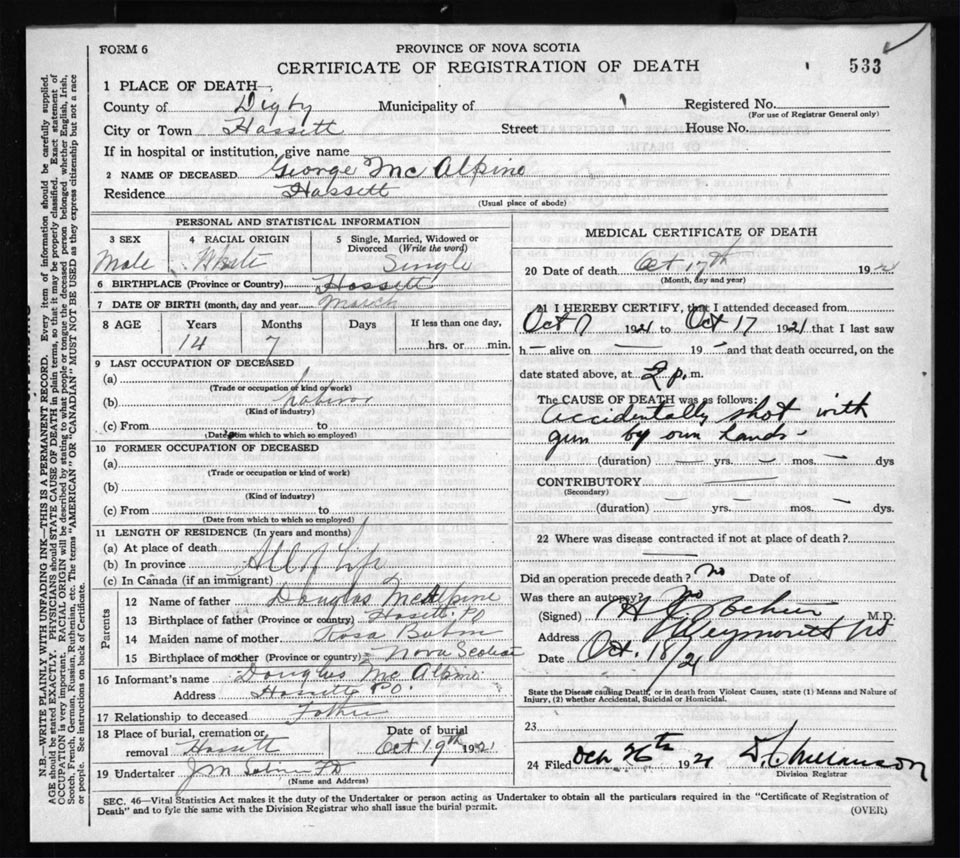 FORM 6
PROVINCE OF NOVA SCOTIA
CERTIFICATE OF REGISTRATION OF DEATH
533
1 PLACE OF DEATH—
County of Digby Municipality of Registered No.
(For use of Registrar General only)
City or Town Hassett Street House No.
If in hospital or institution, give name
2 NAME OF DECEASED George Mc Alpine
Residence Hassett
(Usual place of abode)
PERSONAL AND STATISTICAL INFORMATION
3 SEX 4 RACIAL ORIGIN 5 Single, Married, Widowed or
Divorced (Write the word)
Male White Single
6 BIRTHPLACE (Province or Country) Hassett
7 DATE OF BIRTH (month, day and year) March
8 AGE Years Months Days If less than one day,
14 7 hrs. or min.
9 LAST OCCUPATION OF DECEASED
(a)
(Trade or occupation or kind or work)
(b) Laborer
(Kind of industry)
(c) From to
(Date from which to which so employed)
10 FORMER OCCUPATION OF DECEASED
(a)
(Trade or occupation or kind of work)
(b)
(Kind of industry)
(c) From to
(Date from which to which so employed)
11 LENGTH OF RESIDENCE (In years and months)
(a) At place of death
(b) In province All of Life
(c) In Canada (if an immigrant)
Parents
12 Name of father Douglas McAlpine
13 Birthplace of father (Province or country) Hassett PO
14 Maiden name of mother Rosa
15 Birthplace of mother (Province or country) Nova Scotia
16 Informant's name Douglas Mc Alpine
Address Hassett P.O.
17 Relationship to deceased Father
18 Place of burial, cremation or Date of burial
removal Hassett Oct 19th 1921
19 Undertaker J M
(Name and Address)
MEDICAL CERTIFICATE OF DEATH
20 Date of death Oct 17th 192
(Month, day and year)
21 I HEREBY CERTIFY, that I attended deceased from
Oct 17 1921 to Oct 17 1921 that I last saw
h— alive on — 19— and that death occurred, on the
date stated above, at 2 p. m.
The CAUSE OF DEATH was as follows:
Accidentally shot with
gun by own hands -
(duration) — yrs. — mos. — dys
CONTRIBUTORY —
(Secondary)
(duration) — yrs. — mos. — dys.
22 Where was disease contracted if not at place of death?
Did an operation precede death? no Date of
Was there an autopsy? no
(Signed) H. M.D.
Address Weymouth NS
Date Oct. 18/21
State the Disease causing Death, or in death from Violent Causes, state (1) Means and Nature of
Injury, (2) whether Accidental, Suicidal or Homicidal.
23
24 Filed Oct 26th 1921
Division Registrar
SEC. 46—Vital Statistics Act makes it the duty of the Undertaker or person acting as Undertaker to obtain all the particulars required in the "Certificate of Registration of
Death" and to fyle the same with the Division Registrar who shall issue the burial permit.
(OVER)
N.B.—WRITE PLAINLY WITH UNFADING INK—THIS IS A PERMANENT RECORD. Every item of information should be carefully supplied.
AGE should be stated EXACTLY. PHYSICIANS should STATE CAUSE OF DEATH in plain terms, so that it may be properly classified. Exact statement of
OCCUPATION is very important. RACIAL ORIGIN will be described by stating to what people or tongue the deceased person belonged whether English, Irish,
Scotch, French, German, Russian, Ruthenian, etc. The terms "AMERICAN" OR "CANADIAN" MUST NOT BE USED as they express citizenship but not a race
or people. See instructions on back of Certificate.